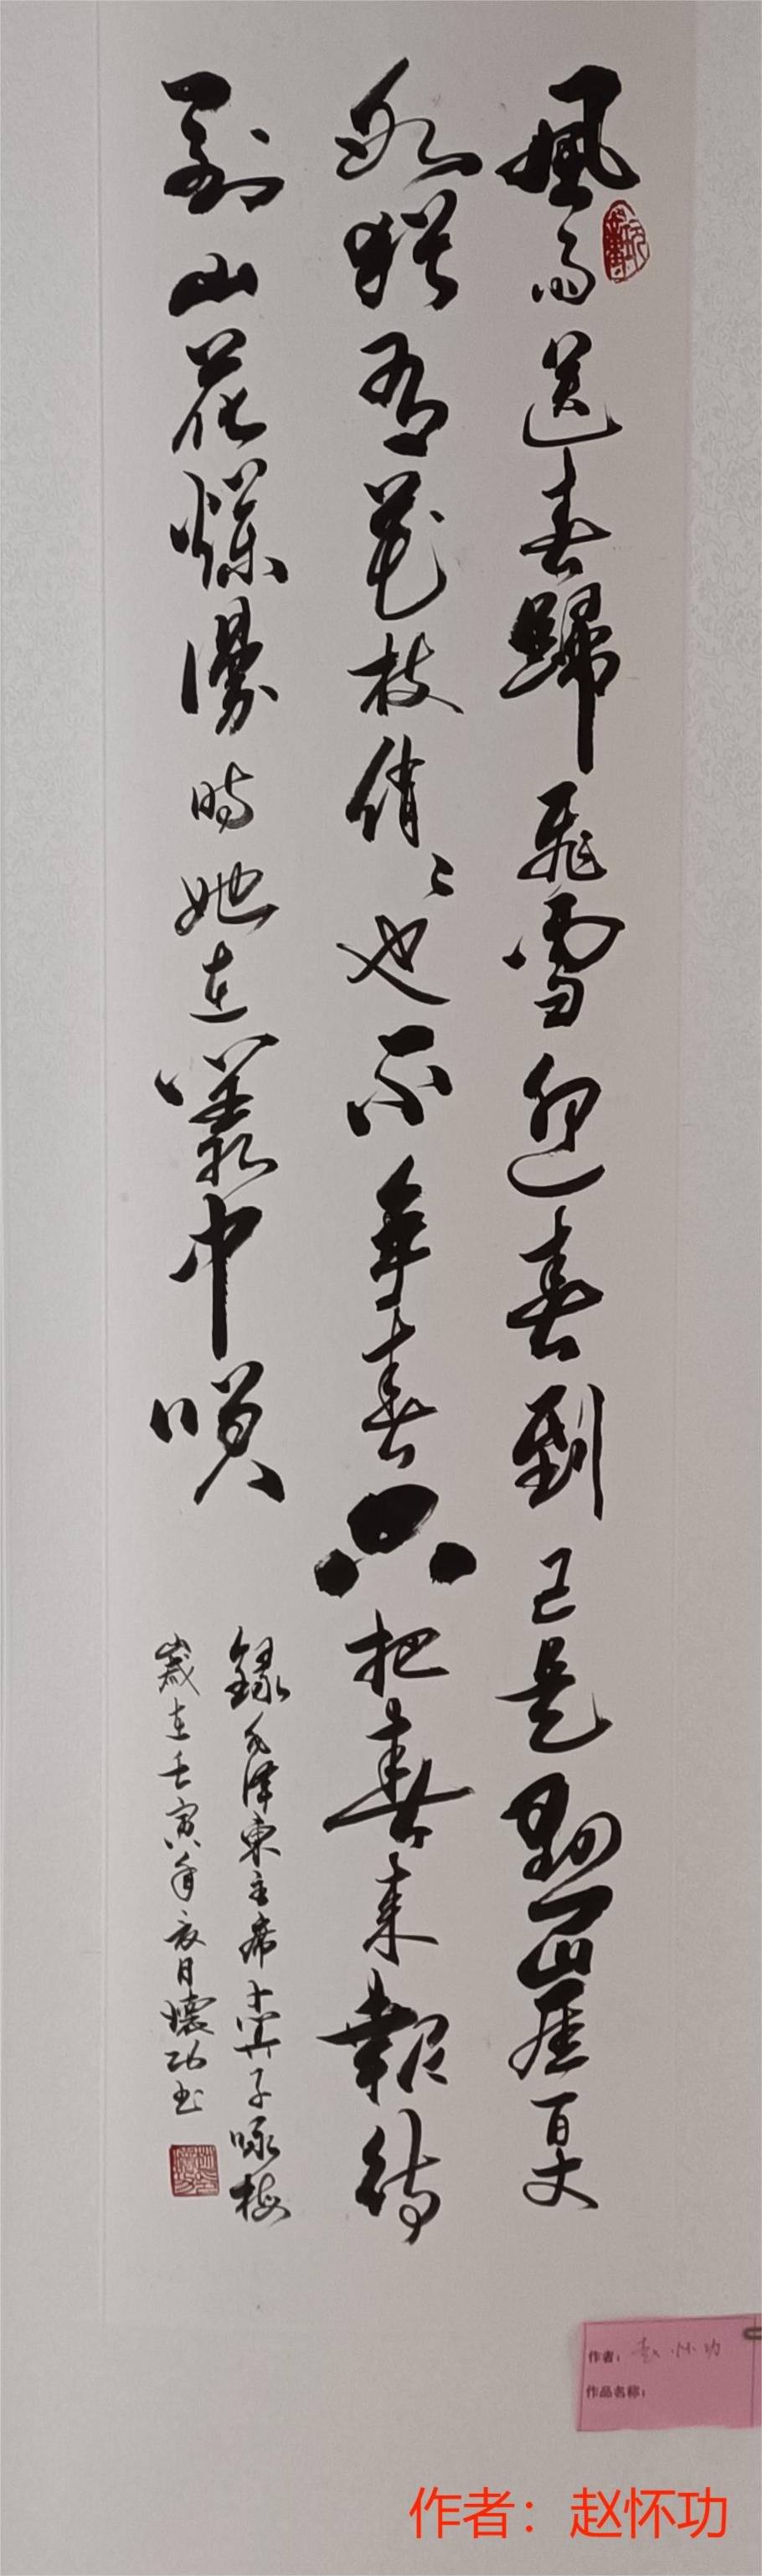 風雨送春歸飛雪迎春到已是懸崖百丈
冰猶有花枝俏〻也不争春只把春來報待
到山花爛漫時她在叢中唉
錄毛澤東主席卜算子咏梅
歲在壬寅年亥月懷功书
作者：赵怀功
作品名称：
作者：赵怀功